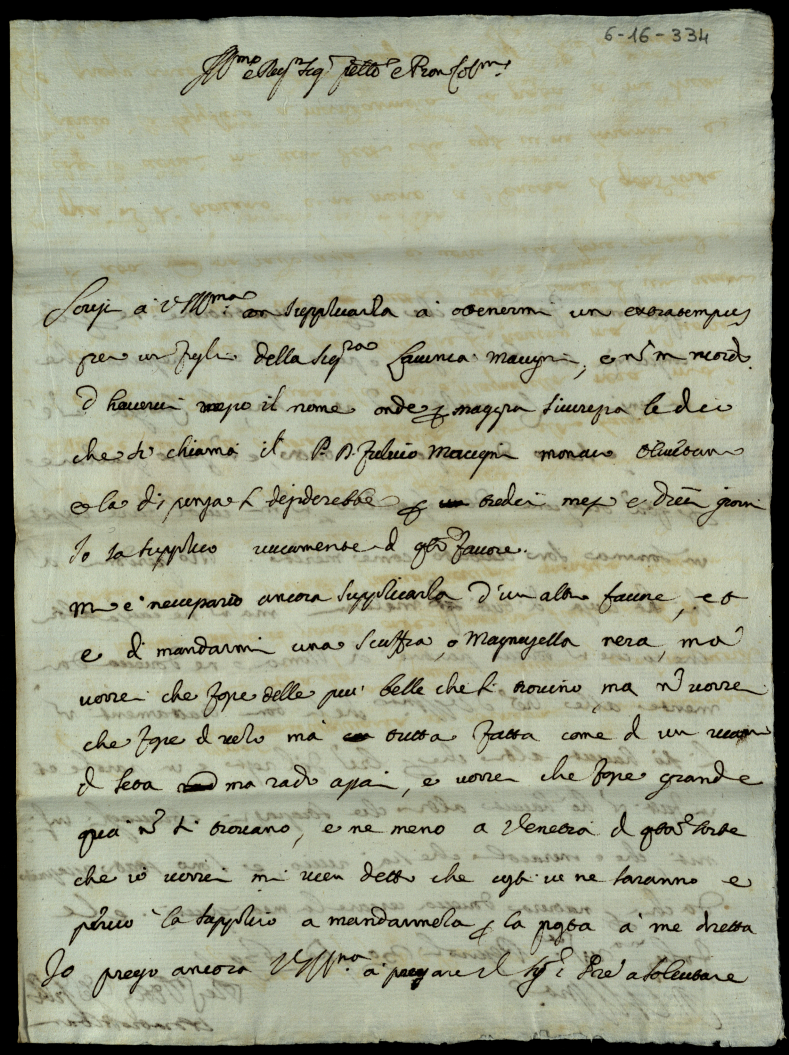 6-16-334
Ill.mo e Rev.mo Sig.r Sig.r e Pron Col.mo
Scrissi à V S Ill.ma supplicarla à ottenermi un extratempus
per un figlio della Sig.ra Lavinia Macigni, e nõ mi ricordo
d'haverci messo il nome onde p maggior sicurezza le dico
che si chiama il P. D. Fulvio Macigni monaco Olivetano
e la dispenza si desiderebbe p tredici mesi e dieci giorni
Io la supplico vivamente d qto favore.
M'e necessario ancora supplicarla d'un altro favore, et
e di mandarmi una scuffia, o Magnosella nera, mà
vorrei che fosse delle piu belle che si trovino, ma nõ vorrei
che fosse d velo mà tutta fatta come d un ricamo
d seta ma rado assai, e vorrei che fosse grande
qua nõ si trovano, e ne meno a Venetia d qta sorte
che io vorrei mi vien detto che costi ve ne saranno e
perciò la supplico a mandarmela p la posta à me diretta
Io prego ancora V S Ill.ma à pregare il Sig.r a sollecitare